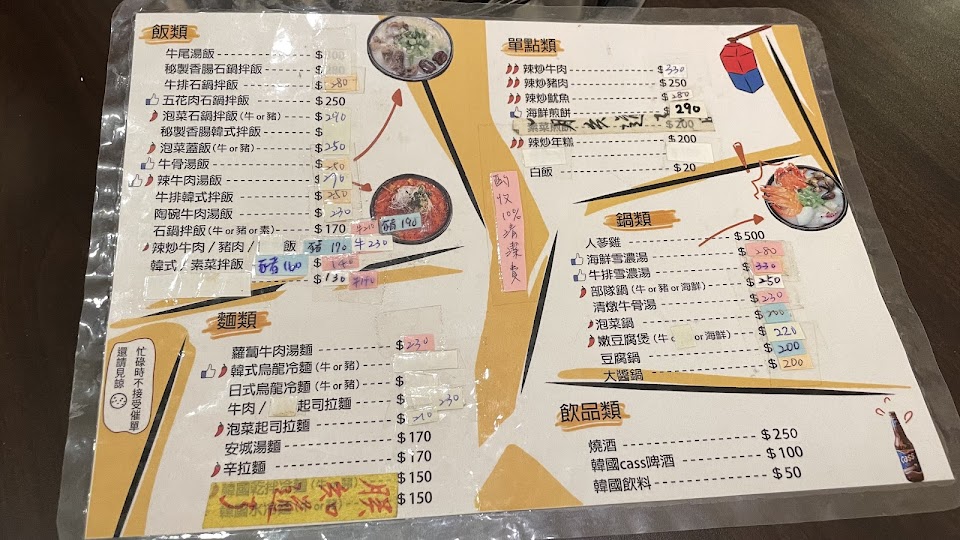 飯類
牛尾湯飯
秘製香腸石鍋拌飯
牛排石鍋拌飯 $280
五花肉石鍋拌飯 $250
泡菜石鍋拌飯(牛or豬) $290
秘製香腸韓式拌飯
泡菜蓋飯(牛or豬) $250
牛骨湯飯 $250
辣牛肉湯飯 $290
牛排韓式拌飯 $250
陶碗牛肉湯飯 $230
石鍋拌飯(牛or豬or素) $170 牛210 豬190
辣炒牛肉/豬肉/ 飯 豬190 牛230
韓式/素菜拌飯 豬160 $140
$130 牛190
麵類
蘿蔔牛肉湯麵 $230
韓式烏龍冷麵(牛or豬)
日式烏龍冷麵(牛or豬) $
牛肉/ 起司拉麵 $230
泡菜起司拉麵 $210
安城湯麵 $170
辛拉麵 $170
$150
$150
忙碌時不接受催單
還請見諒
酌收10%清潔費
單點類
辣炒牛肉 $330
辣炒豬肉 $250
辣炒魷魚 $280
海鮮煎餅 $290
素菜煎餅 $200
辣炒年糕 $200
白飯 $20
鍋類
人蔘雞 $500
海鮮雪濃湯 $280
牛排雪濃湯 $330
部隊鍋(牛or豬or海鮮) $250
清燉牛骨湯 $230
泡菜鍋 $200
嫩豆腐煲(牛 or海鮮) $220
豆腐鍋 $200
大醬鍋 $200
飲品類
燒酒 $250
韓國cass啤酒 $100
韓國飲料 $50